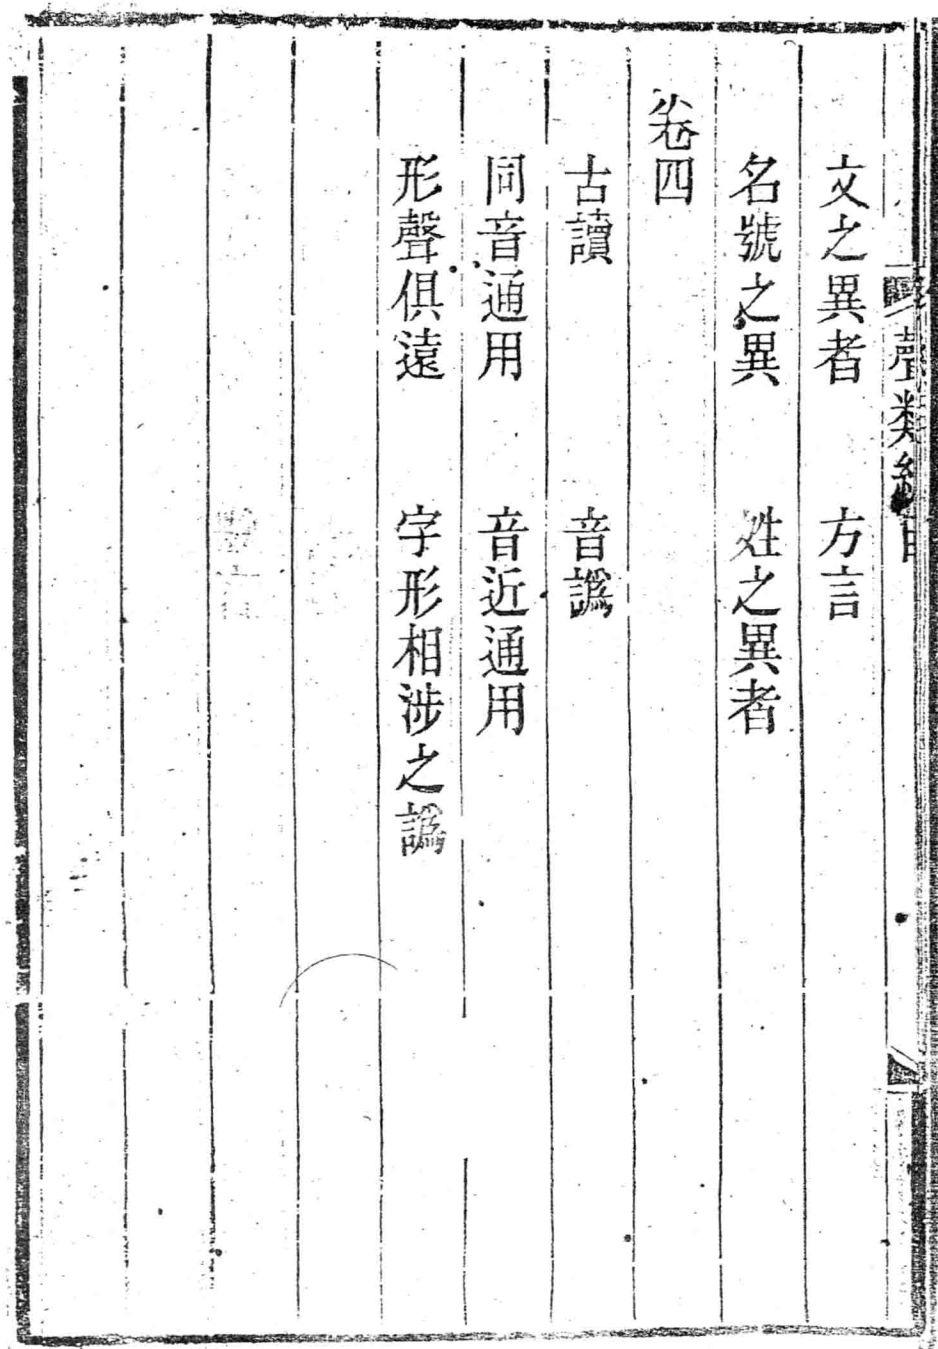 聲類總目
文之異者　方言
名號之異　姓之異者
卷四
古讀　音譌
同音通用　音近通用
形聲俱遠　字形相涉之譌